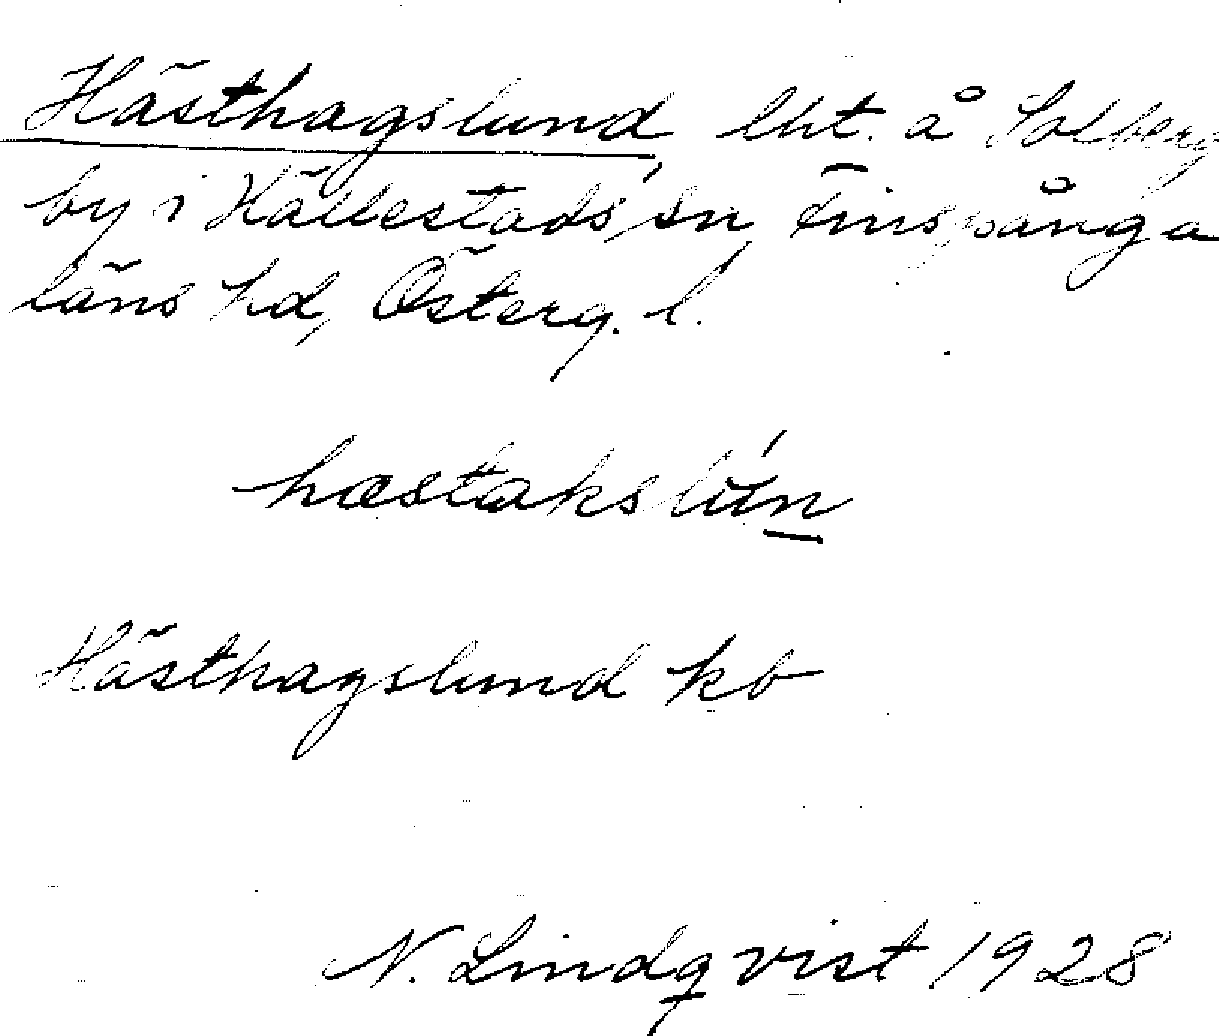 Hästhagslund, lht. å Solberg
by i Hällestads sn, Finspånga
läns hd, Österg. l.
hæstakslún
Hästhagslund kb
N. Lindqvist 1928